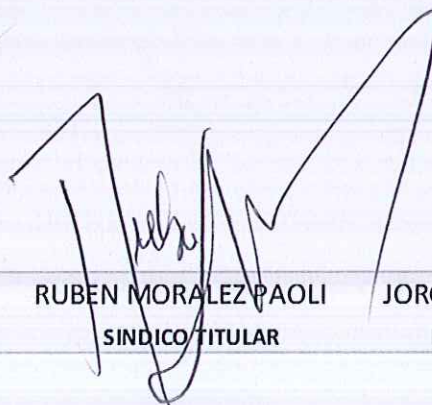 RUBEN MORALEZ PAOLI JORG
SINDICO TITULAR